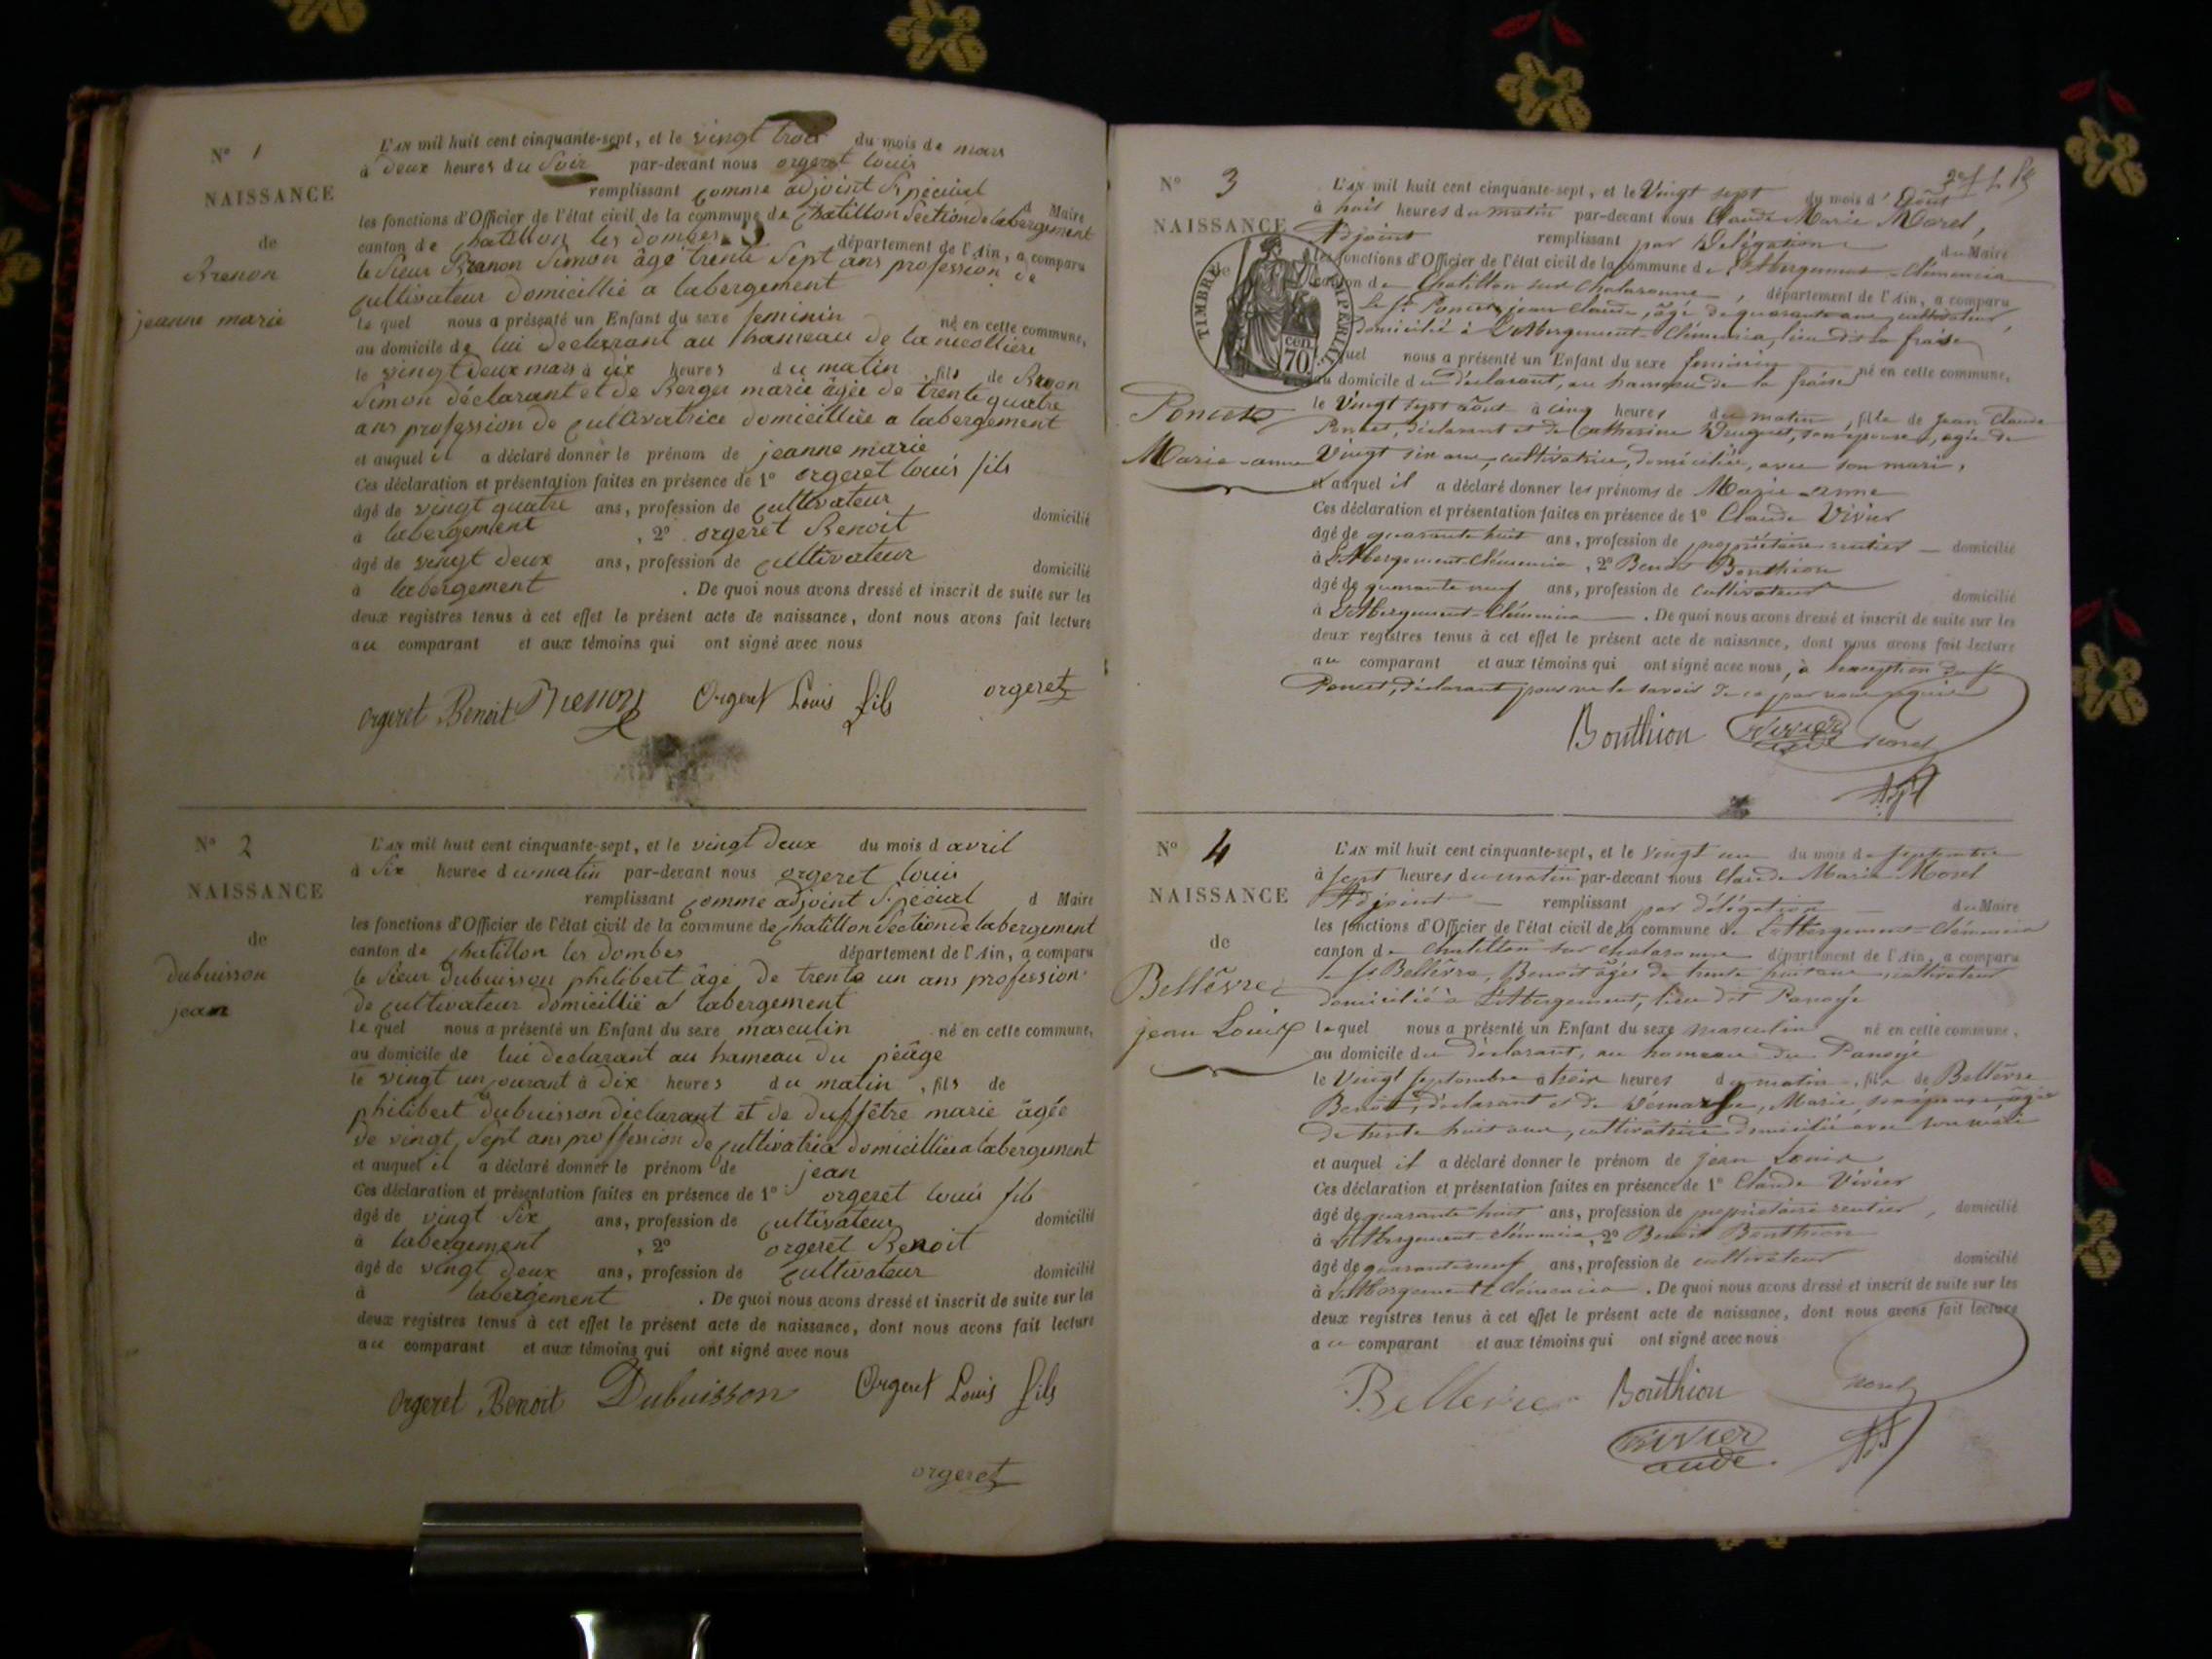 N° 1
NAISSANCE
de
Brenon
jeanne marie
L'AN mil huit cent cinquante-sept, et le vingt trois du mois de mars
à deux heures du Soir par-devant nous orgeret louis
remplissant comme adjoint Spécial d Maire
les fonctions d'Officier de l'état civil de la commune de chatillon Section de labergement
canton de chatillon les dombes département de l'Ain, a comparu
le Sieur Brenon Simon âgé trente Sept ans profession de
cultivateur domicillié a labergement
le quel nous a présenté un Enfant du sexe feminin né en cette commune,
au domicile de lui declarant au hameau de la
le vingt deux mars à heures du matin, fils de
Simon déclarant et de Berger marie âgée de trente quatre
ans profession de cultivatrice domicilliée a labergement
et auquel il a déclaré donner le prénom de jeanne marie
Ces déclaration et présentation faites en présence de 1° orgeret louis fils
âgé de vingt quatre ans, profession de cultivateur domicilié
à labergement, 2° orgeret Benoit
âgé de vingt deux ans, profession de cultivateur domicilié
à labergement. De quoi nous avons dressé et inscrit de suite sur les
deux registres tenus à cet effet le présent acte de naissance, dont nous avons fait lecture
au comparant et aux témoins qui ont signé avec nous
orgeret Benoit Brenon Orgeret Louis fils orgeret
N° 2
NAISSANCE
de
dubuisson
jean
L'AN mil huit cent cinquante-sept, et le vingt deux du mois d avril
à Six heures du matin par-devant nous orgeret louis
remplissant comme adjoint Spécial d Maire
les fonctions d'Officier de l'état civil de la commune de chatillon Section de labergement
canton de chatillon les dombes département de l'Ain, a comparu
le Sieur dubuisson philibert âgé de trente un ans profession
de cultivateur domicillié a labergement
le quel nous a présenté un Enfant du sexe masculin né en cette commune,
au domicile de lui declarant au hameau du péäge
le vingt un courant à dix heures du matin, fils de
philibert dubuisson déclarant et de duffêtre marie âgée
de vingt Sept ans proffession de cultivatrice domicilliée a labergement
et auquel il a déclaré donner le prénom de jean
Ces déclaration et présentation faites en présence de 1° orgeret louis fils
âgé de vingt Six ans, profession de cultivateur domicilié
à labergement, 2° orgeret Benoit
âgé de vingt deux ans, profession de cultivateur domicilié
à labergement. De quoi nous avons dressé et inscrit de suite sur les
deux registres tenus à cet effet le présent acte de naissance, dont nous avons fait lecture
au comparant et aux témoins qui ont signé avec nous
orgeret Benoit Dubuisson Orgeret Louis fils
orgeret
N° 3
NAISSANCE
de
TIMBRE IMPERIAL
70 cen
Poncet
Marie-anne
L'AN mil huit cent cinquante-sept, et le Vingt sept du mois d'Août
à huit heures du matin par-devant nous Claude Marie Morel,
Adjoint remplissant par Délégation du Maire
les fonctions d'Officier de l'état civil de la commune de L'Abergement-Clémencia
canton de Chatillon sur Chalaronne, département de l'Ain, a comparu
Le Sr Poncet, jean Claude, âgé de quarante ans, cultivateur,
domicilié à L'Abergement-Clémencia, lieu dit la fraise
lequel nous a présenté un Enfant du sexe feminin né en cette commune,
au domicile du déclarant, au hameau de la fraise
le Vingt sept août à cinq heures du matin, fille de Jean Claude
Poncet, déclarant et de Catherine son épouse, agée de
Vingt six ans, cultivatrice, domiciliée, avec son mari,
et auquel il a déclaré donner les prénoms de Marie-anne
Ces déclaration et présentation faites en présence de 1° Claude Vivier
âgé de quarante huit ans, profession de propriétaire rentier domicilié
à L'Abergement-Clémencia, 2° Benoit Bonthion
âgé de quarante neuf ans, profession de cultivateur domicilié
à L'Abergement-Clémencia. De quoi nous avons dressé et inscrit de suite sur les
deux registres tenus à cet effet le présent acte de naissance, dont nous avons fait lecture
au comparant et aux témoins qui ont signé avec nous, à l'exception du Sr
Poncet, déclarant pour ne le savoir de ce par nous requis
Bonthion Vivier Morel
Adjt
N° 4
NAISSANCE
de
Bellêvre
jean Louis
L'AN mil huit cent cinquante-sept, et le vingt un du mois de septembre
à sept heures du matin par-devant nous Claude Marie Morel
Adjoint remplissant par délégation du Maire
les fonctions d'Officier de l'état civil de la commune de L'Abergement-Clémencia
canton de Chatillon sur Chalaronne département de l'Ain, a comparu
le Sr Bellêvre, Benoit âgé de trente huit ans, cultivateur
domicilié à L'Abergement, lieu dit Panoye
lequel nous a présenté un Enfant du sexe masculin né en cette commune,
au domicile du déclarant, au hameau du Panoye
le Vingt septembre à trois heures du matin, fils de Bellêvre
Benoit, déclarant et de Marie, son épouse âgée
de trente huit ans, cultivatrice domiciliée avec son mari
et auquel il a déclaré donner le prénom de jean Louis
Ces déclaration et présentation faites en présence de 1° Claude Vivier
âgé de quarante huit ans, profession de propriétaire rentier, domicilié
à L'Abergement Clémencia, 2° Benoit Bonthion
âgé de quarante neuf ans, profession de cultivateur domicilié
à L'Abergement Clémencia. De quoi nous avons dressé et inscrit de suite sur les
deux registres tenus à cet effet le présent acte de naissance, dont nous avons fait lecture
au comparant et aux témoins qui ont signé avec nous
Bellevre Bonthion Morel
Vivier Adjt